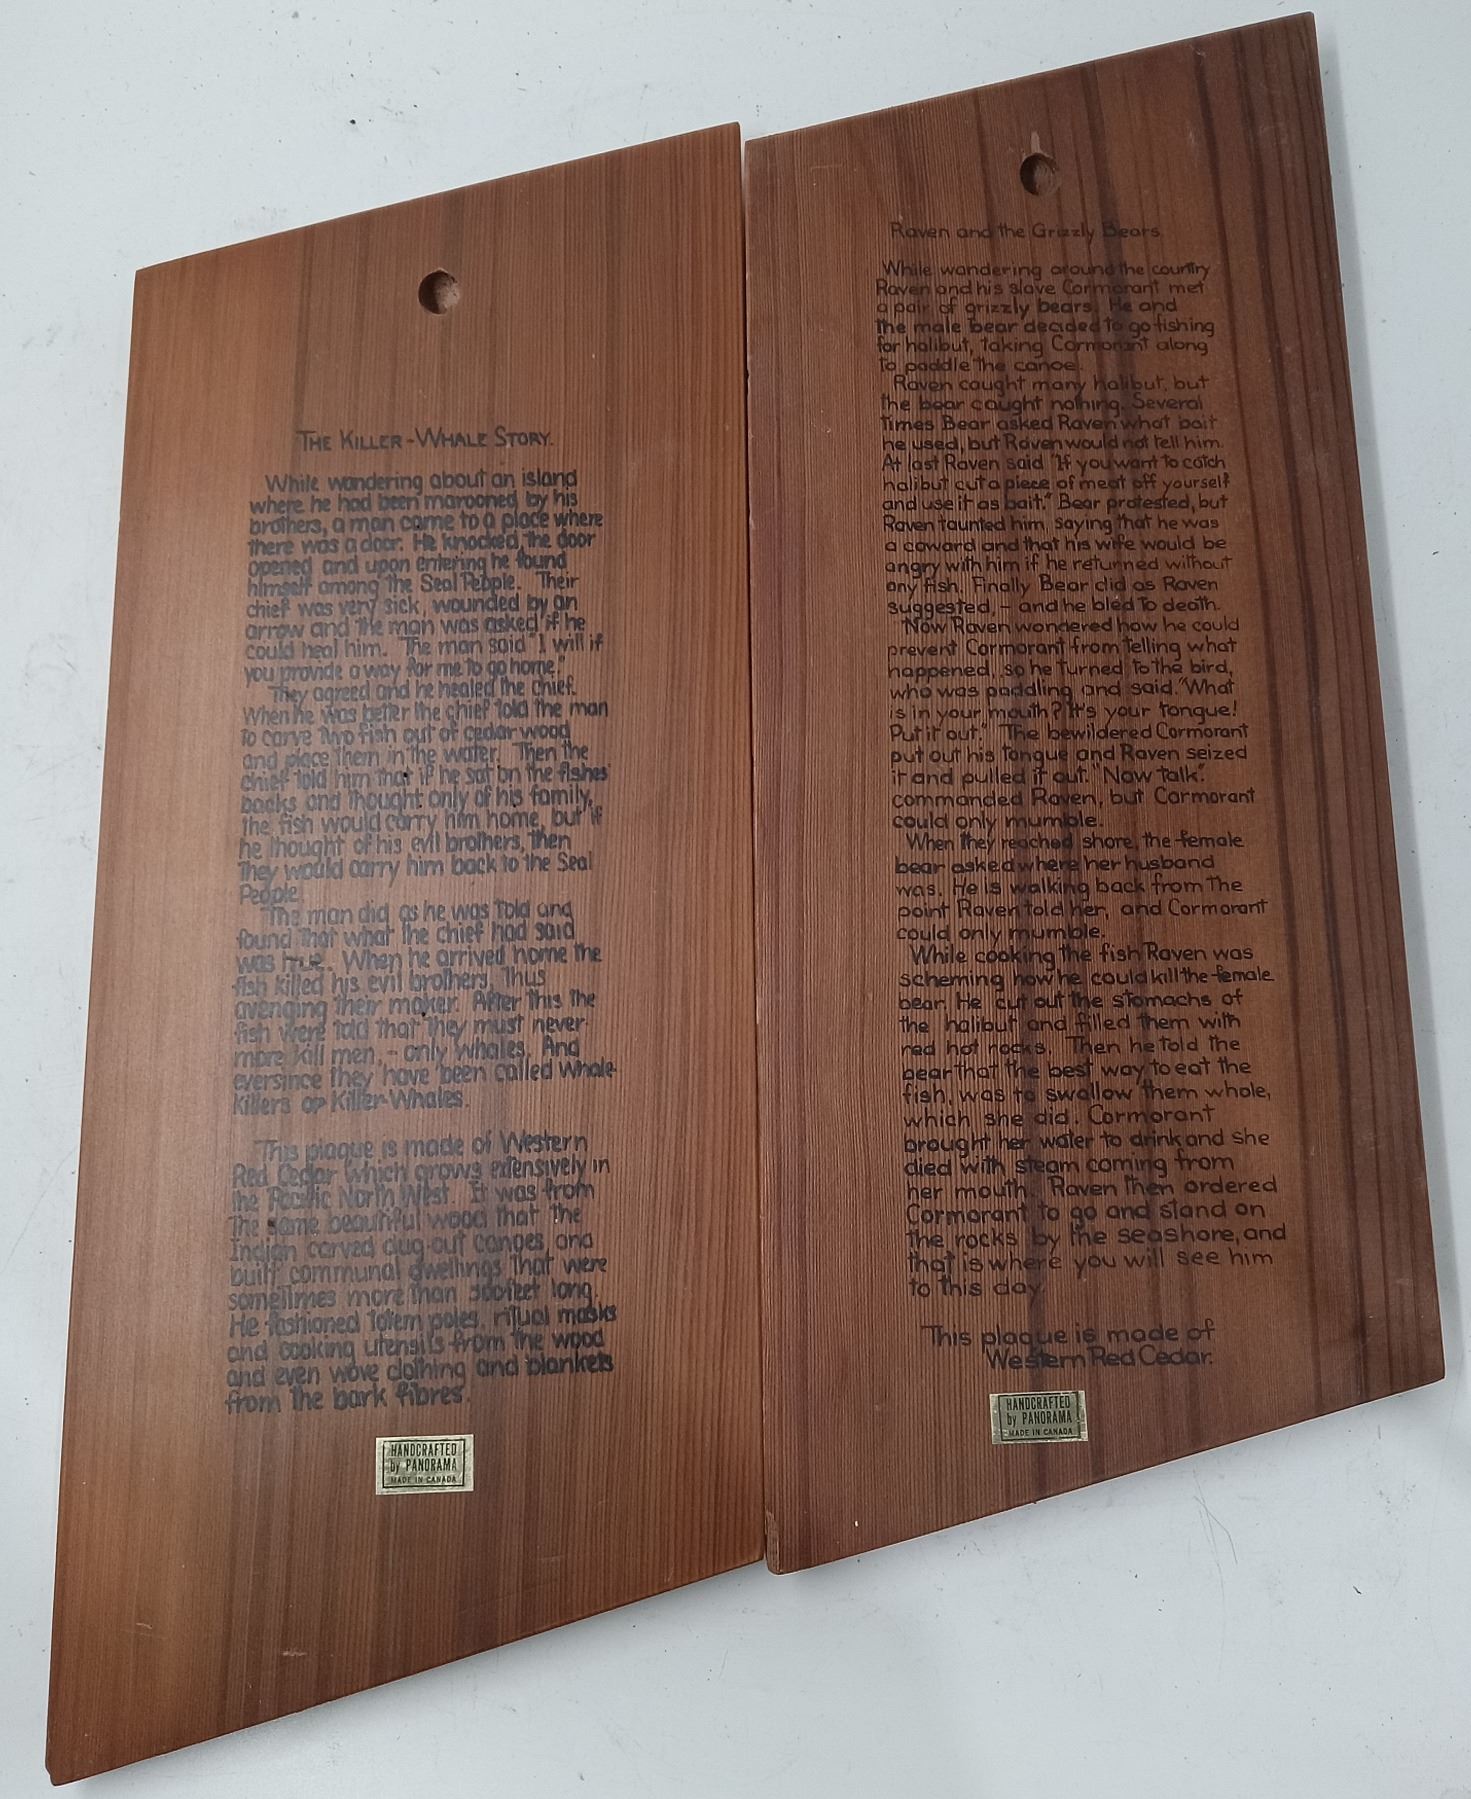 THE KILLER-WHALE STORY.
While wandering about an island
where he had been marooned by his
brothers, a man came to a place where
there was a door. He knocked, the door
opened and upon entering he found
himself among the Seal People. Their
chief was very sick, wounded by an
arrow and the man was asked if he
could heal him. The man said "I will if
you provide a way for me to go home."
They agreed and he healed the chief.
When he was better the chief told the man
to carve two fish out of cedar wood
and place them in the water. Then the
chief told him that if he sat on the fishes'
backs and thought only of his family,
the fish would carry him home, but if
he thought of his evil brothers, then
they would carry him back to the Seal
People.
The man did as he was told and
found that what the chief had said
was true. When he arrived home the
fish killed his evil brothers, thus
avenging their maker. After this the
fish were told that they must never
more kill men, - only whales. And
eversince they have been called Whale-
killers or Killer-Whales.
This plaque is made of Western
Red Cedar which grows extensively in
the Pacific North West. It was from
the same beautiful wood that the
Indian carved dug-out canoes and
built communal dwellings that were
sometimes more than 500feet long.
He fashioned totem poles, ritual masks
and cooking utensils from the wood
and even wove clothing and blankets
from the bark fibres.
HANDCRAFTED
by PANORAMA
MADE IN CANADA
Raven and the Grizzly Bears
While wandering around the country
Raven and his slave Cormorant met
a pair of grizzly bears. He and
the male bear decided to go fishing
for halibut, taking Cormorant along
to paddle the canoe.
Raven caught many halibut, but
the bear caught nothing. Several
times Bear asked Raven what bait
he used, but Raven would not tell him.
At last Raven said "If you want to catch
halibut cut a piece of meat off yourself
and use it as bait." Bear protested, but
Raven taunted him, saying that he was
a coward and that his wife would be
angry with him if he returned without
any fish. Finally Bear did as Raven
suggested, - and he bled to death.
Now Raven wondered how he could
prevent Cormorant from telling what
happened, so he turned to the bird,
who was paddling and said. "What
is in your mouth? It's your tongue!
Put it out." The bewildered Cormorant
put out his tongue and Raven seized
it and pulled it out. "Now talk".
commanded Raven, but Cormorant
could only mumble.
When they reached shore, the female
bear asked where her husband
was. He is walking back from the
point Raven told her, and Cormorant
could only mumble.
While cooking the fish Raven was
scheming how he could kill the female
bear. He cut out the stomachs of
the halibut and filled them with
red hot rocks. Then he told the
bear that the best way to eat the
fish, was to swallow them whole,
which she did. Cormorant
brought her water to drink and she
died with steam coming from
her mouth. Raven then ordered
Cormorant to go and stand on
the rocks by the seashore, and
that is where you will see him
to this day.
This plaque is made of
Western Red Cedar.
HANDCRAFTED
by PANORAMA
MADE IN CANADA